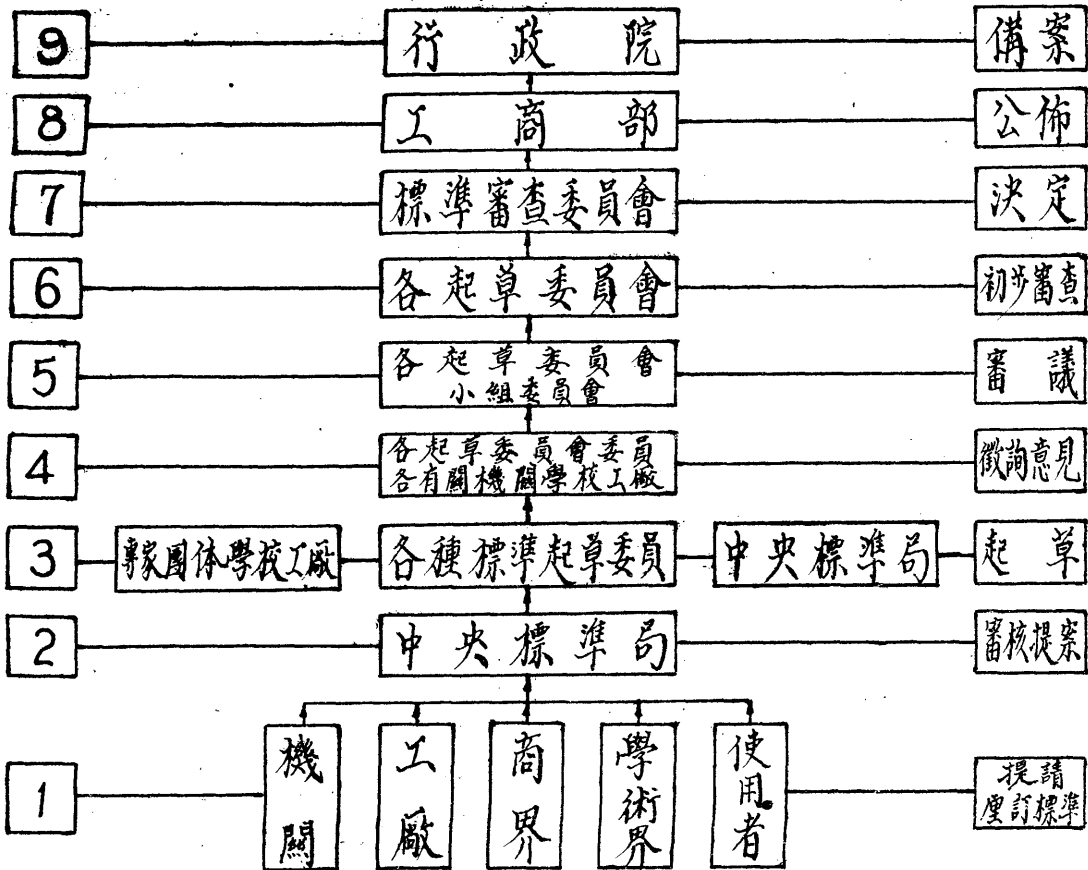 9 行政院 備案
8 工商部 公佈
7 標準審查委員會 決定
6 各起草委員會 初步審查
5 各起草委員會 審議
小組委員會
4 各起草委員會委員 徵詢意見
各有關機關學校工廠
3 專家團体學校工廠 各種標準起草委員 中央標準局 起草
2 中央標準局 審核提案
1 機關 工廠 商界 學術界 使用者 提請
厘訂標準